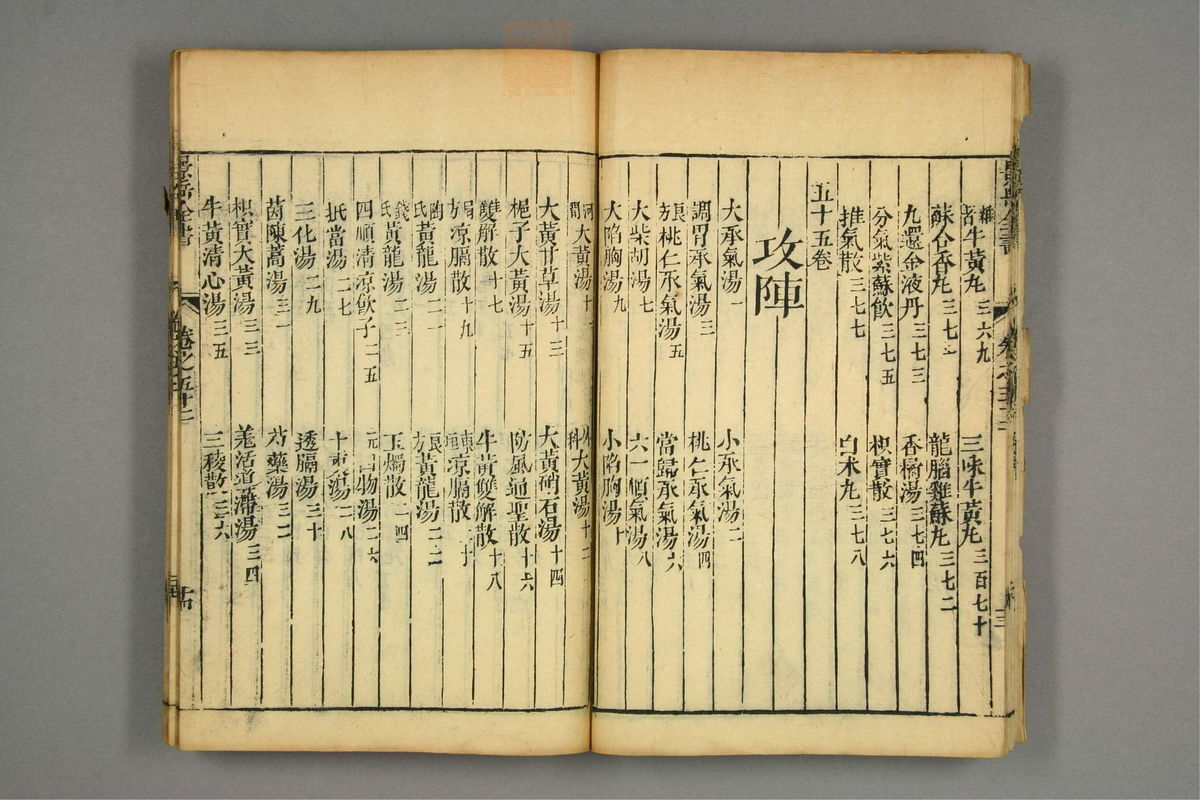 雜著牛黃丸 三六九　三味牛黃丸 三百七十
蘇合香丸 三七一　龍腦雞蘇丸 三七二
九還金液丹 三七三　香橘湯 三七四
分氣紫蘇飲 三七五　枳實散 三七六
推氣散 三七七　白朮丸 三七八
五十五卷
攻陣
大承氣湯 一　小承氣湯 二
調胃承氣湯 三　桃仁承氣湯 四
良方桃仁承氣湯 五　當歸承氣湯 六
大柴胡湯 七　六一順氣湯 八
大陷胸湯 九　小陷胸湯 十
河間大黃湯 十一　外科大黃湯 十二
大黃甘草湯 十三　大黃硝石湯 十四
梔子大黃湯 十五　防風通聖散 十六
雙解散 十七　牛黃雙解散 十八
局方涼膈散 十九　東垣涼膈散 二十
陶氏黃龍湯 二一　良方黃龍湯 二二
錢氏黃龍湯 二三　玉燭散 二四
四順清涼飲子 二五　元曰物湯 二六
抵當湯 二七　十棗湯 二八
三化湯 二九　透膈湯 三十
茵陳蒿湯 三一　芍藥湯 三二
枳實大黃湯 三三　羌活導滯湯 三四
牛黃清心湯 三五　三稜散 三六
景岳全書
卷之五十二